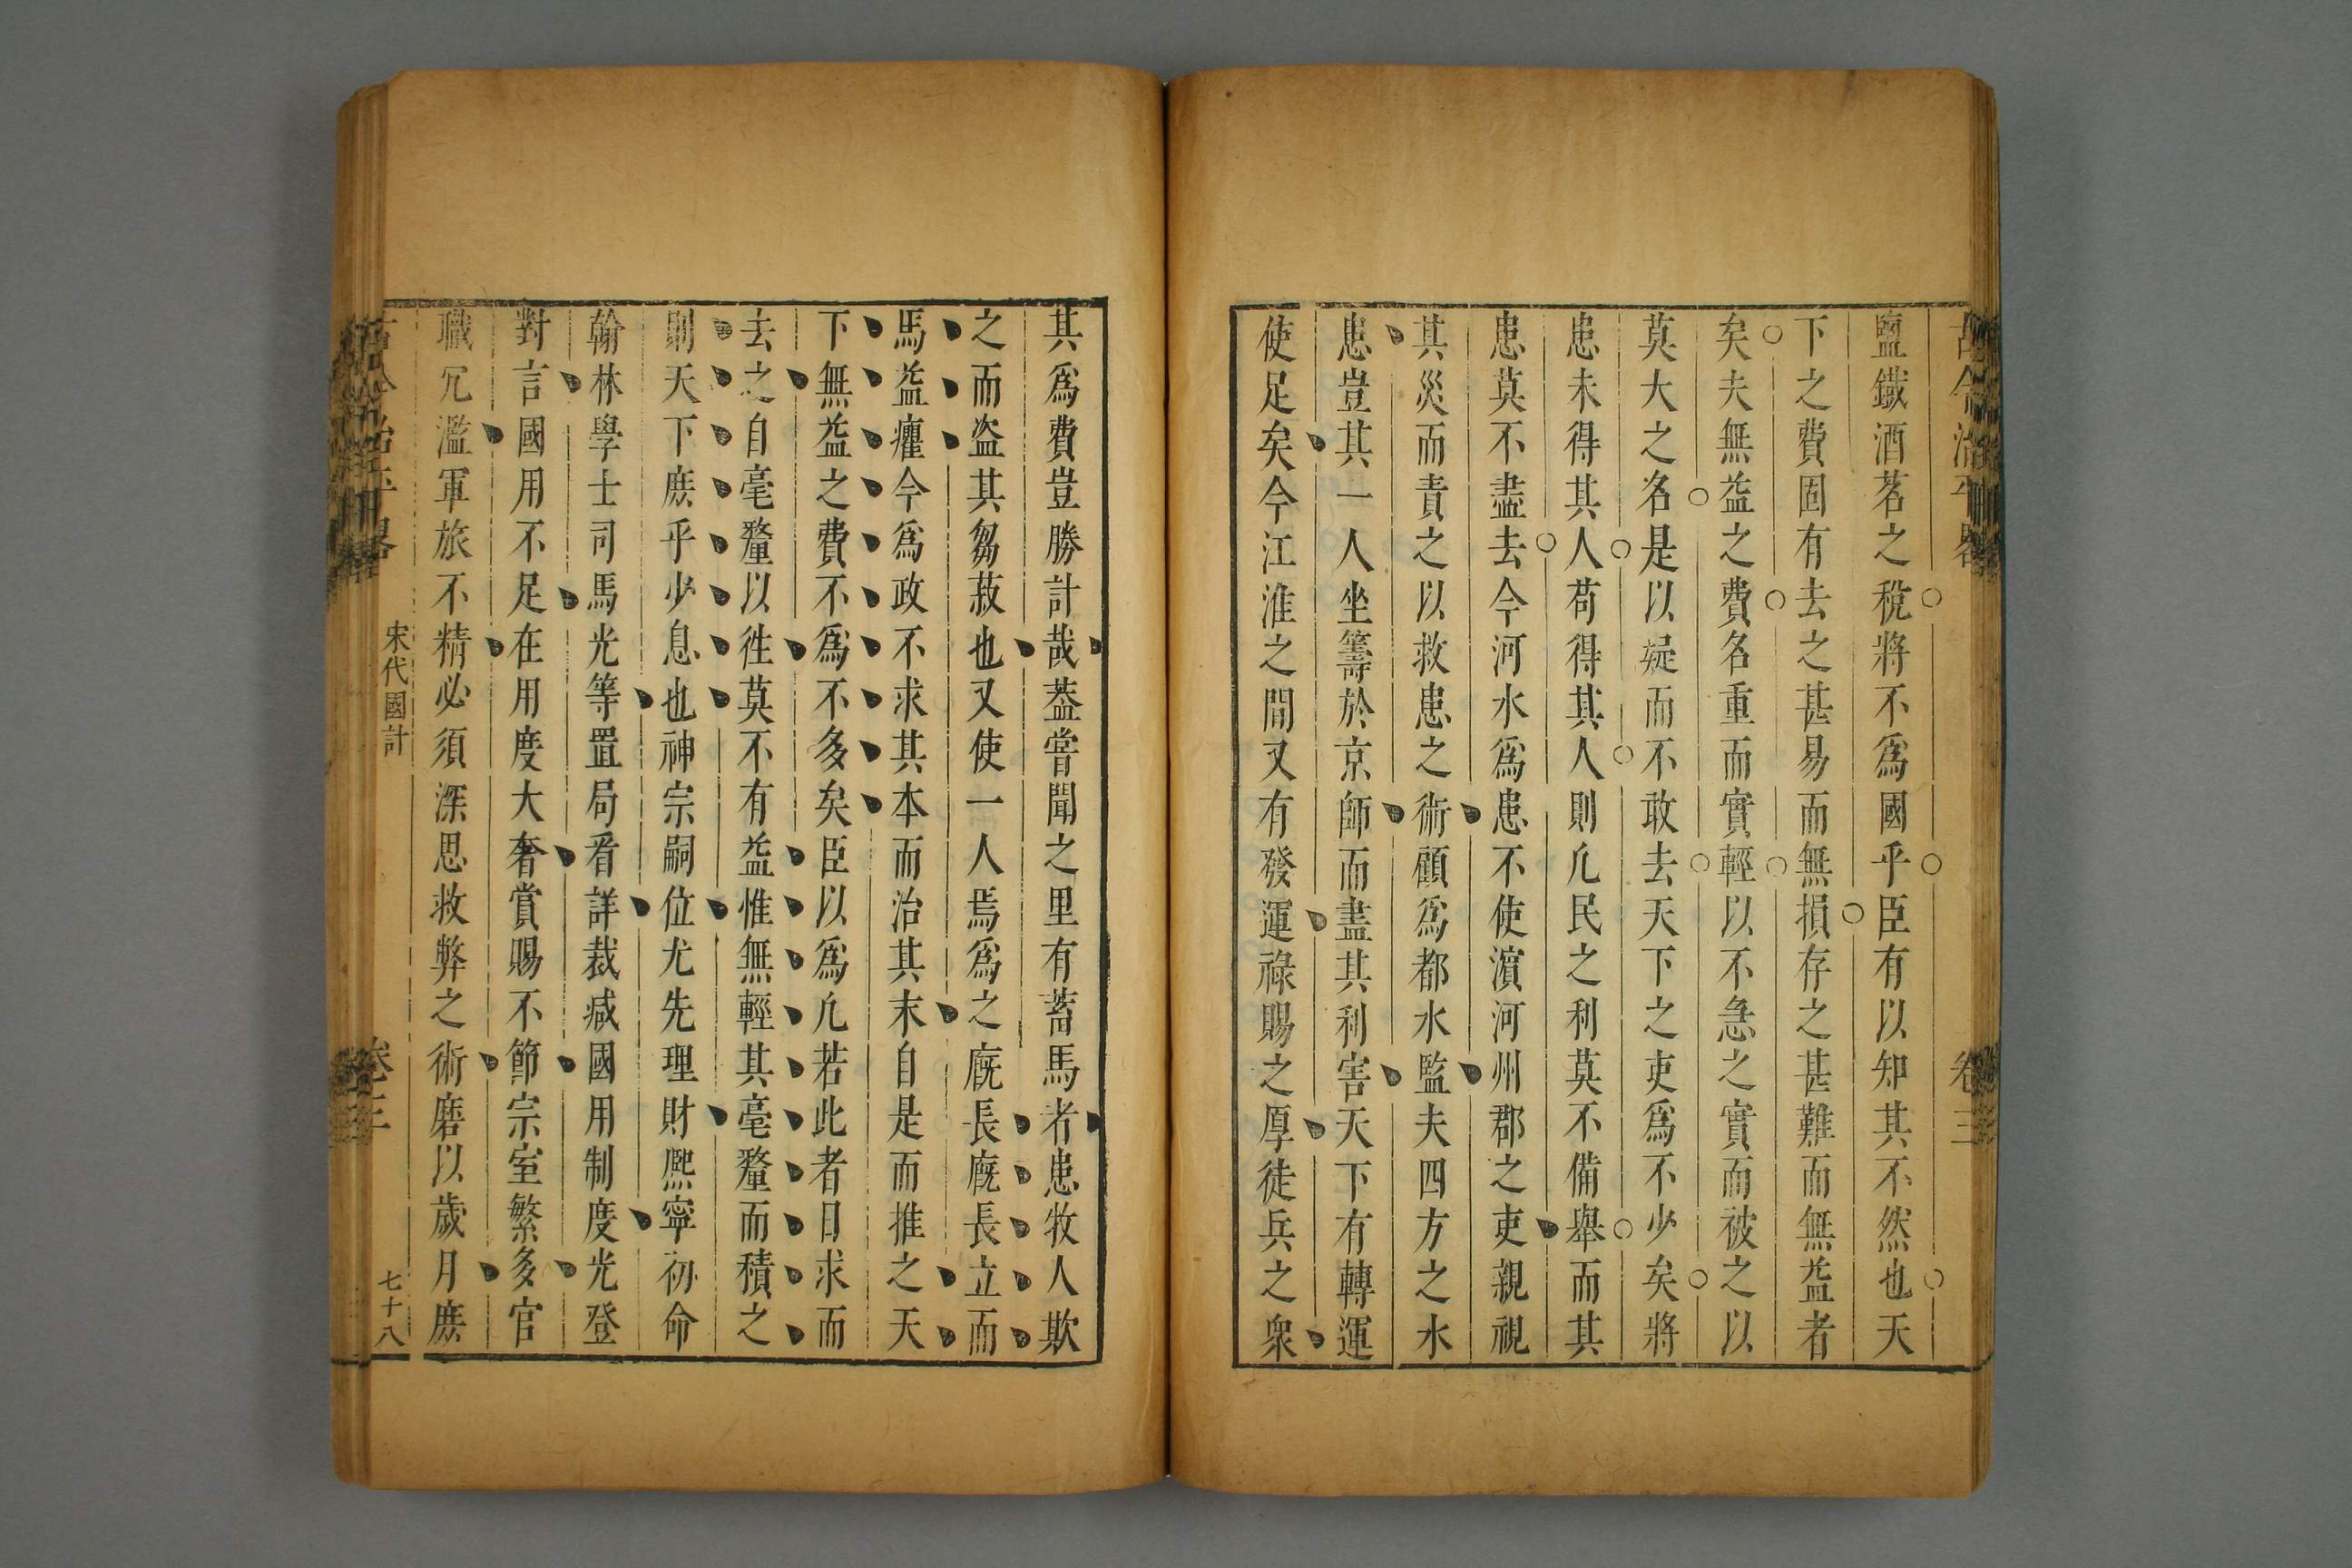 古今治平畧 卷三
鹽鐵酒茗之稅將不爲國乎臣有以知其不然也天
下之費固有去之甚易而無損存之甚難而無益者
矣夫無益之費名重而實輕以不急之實而被之以
莫大之名是以疑而不敢去天下之吏爲不少矣將
患未得其人苟得其人則凢民之利莫不備舉而其
患莫不盡去今河水爲患不使濵河州郡之吏親視
其災而責之以救患之術顧爲都水監夫四方之水
患豈其一人坐籌於京師而盡其利害天下有轉運
使足矣今江淮之間又有發運祿賜之厚徒兵之衆
其爲費豈勝計哉葢嘗聞之里有蓄馬者患牧人欺
之而盗其芻菽也又使一人焉爲之廐長廐長立而
馬益癯今爲政不求其本而治其末自是而推之天
下無益之費不爲不多矣臣以爲凢若此者日求而
去之自毫釐以徃莫不有益惟無輕其毫釐而積之
則天下庶乎少息也神宗嗣位尤先理財熈寧初命
翰林學士司馬光等置局看詳裁减國用制度光登
對言國用不足在用度大奢賞賜不節宗室繁多官
職冗濫軍旅不精必須深思救弊之術磨以歲月庶
古今治平畧 宋代國計 卷三 七十八